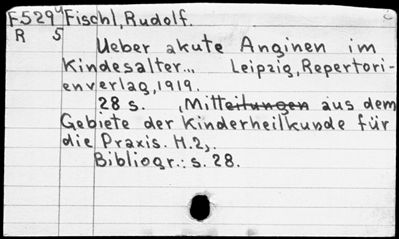 F529y Fischl, Rudolf. c
R 5
Ueber akute Anginen im
Kindesalter... Leipzig, Repertori-
enverlag, 1919.
28 s. (Mitteilungen aus dem
Gebiete der Kinderheilkunde für
die Praxis. H.2).
Bibliogr.: s. 28.